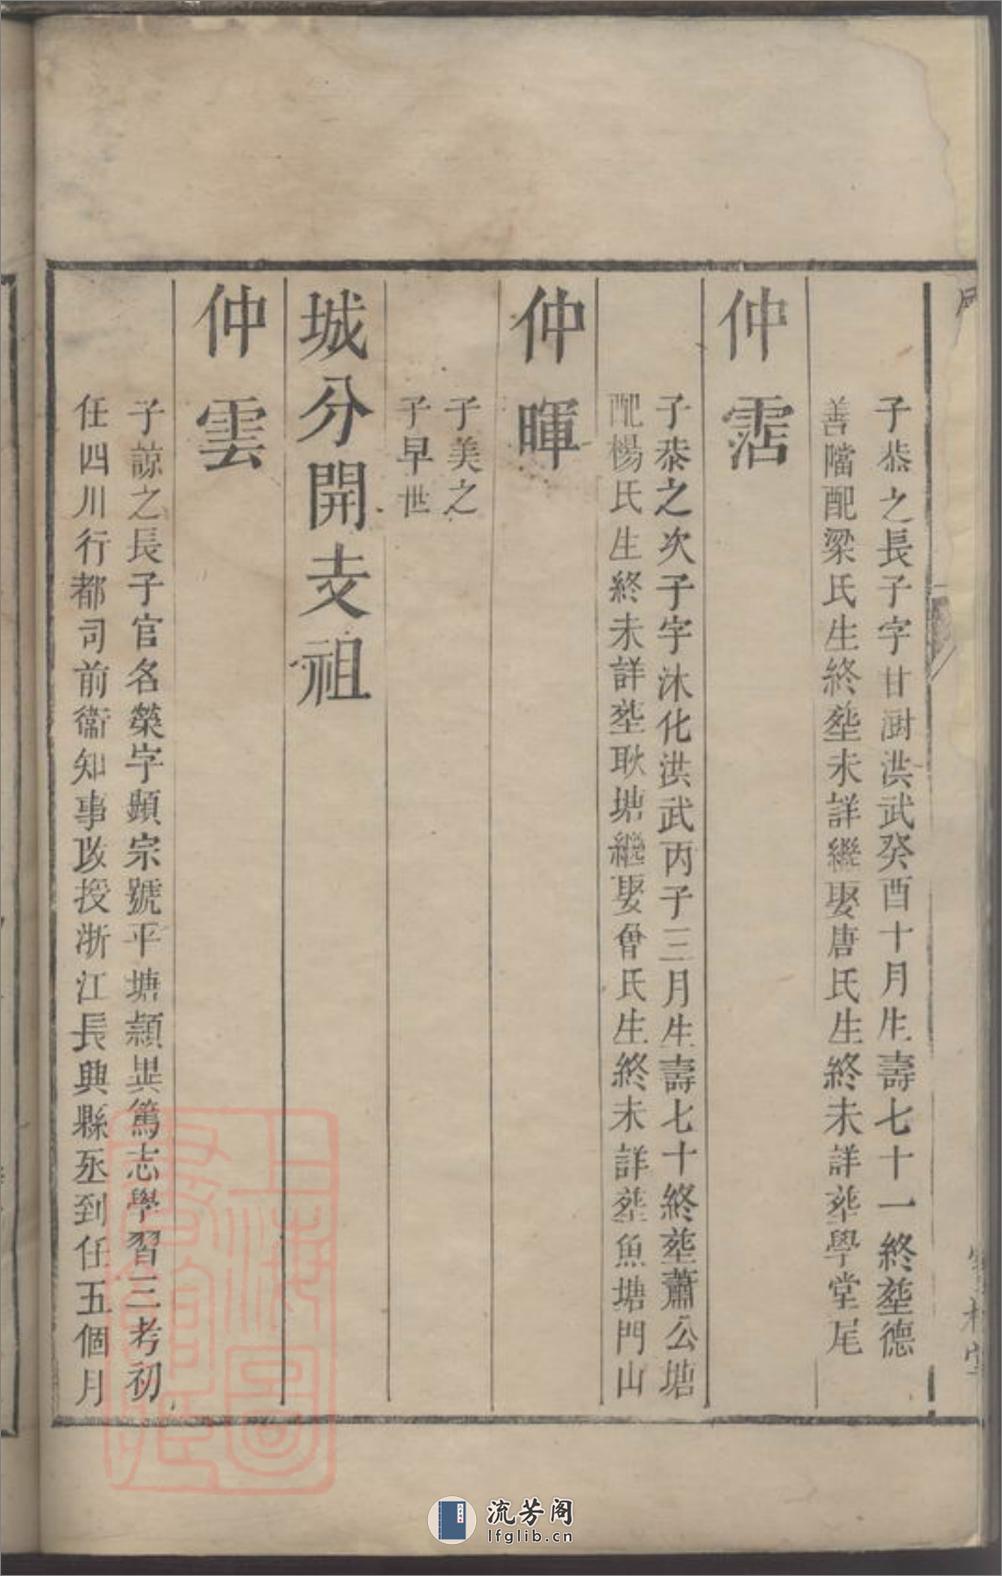 仲霑
子恭之長子字甘澍洪武癸酉十月生壽七十一終塟德
善障配梁氏生終塟未詳繼娶唐氏生終未詳塟學堂尾
仲暉
子恭之次子字沐化洪武丙子三月生壽七十終塟蕭公塘
配楊氏生終未詳塟耿塘繼娶曾氏生終未詳塟魚塘門山
子美之
子早世
城分開支祖
仲雲
子諒之長子官名榮字顯宗號平塘穎異篤志學習三考初
任四川行都司前衞知事改授浙江長興縣丞到任五個月
上海圖書館藏
流芳阁
lfglib.cn